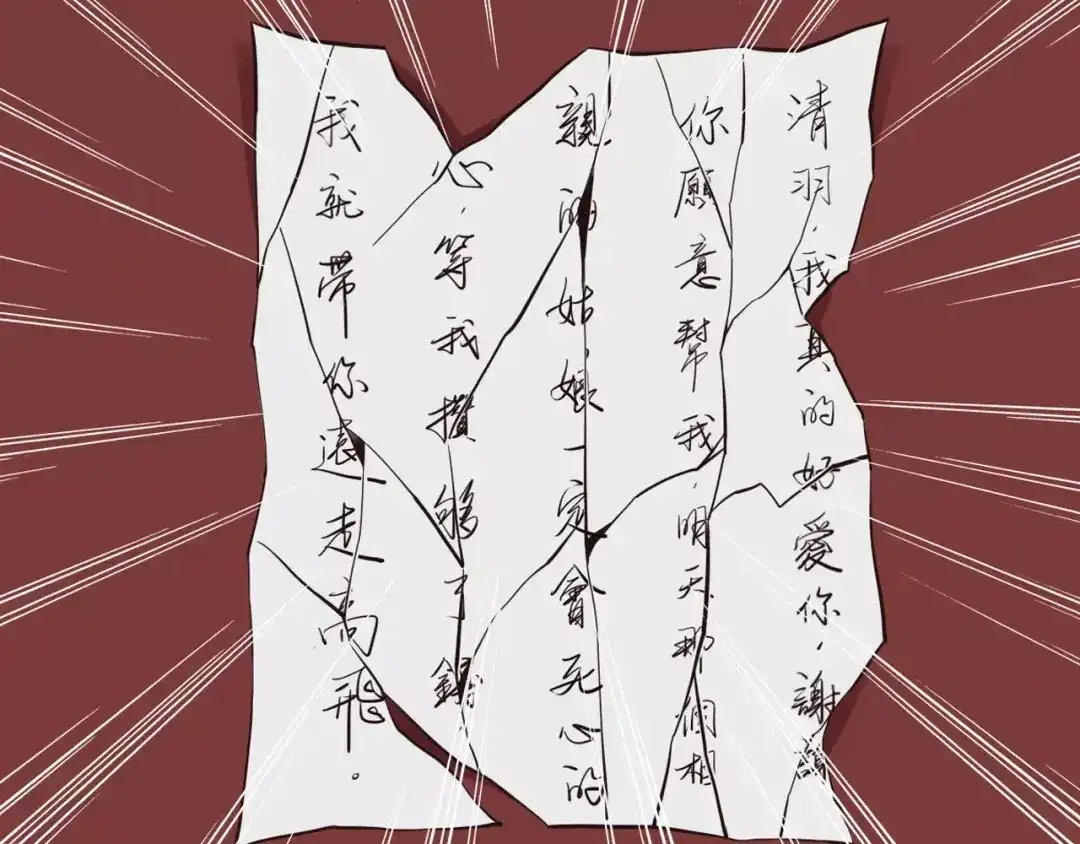 清羽，我真的好愛你，謝謝
你願意幫我，明天那個相
親的姑娘一定會死心的
心，等我攢够了錢
我就带你遠走高飛。